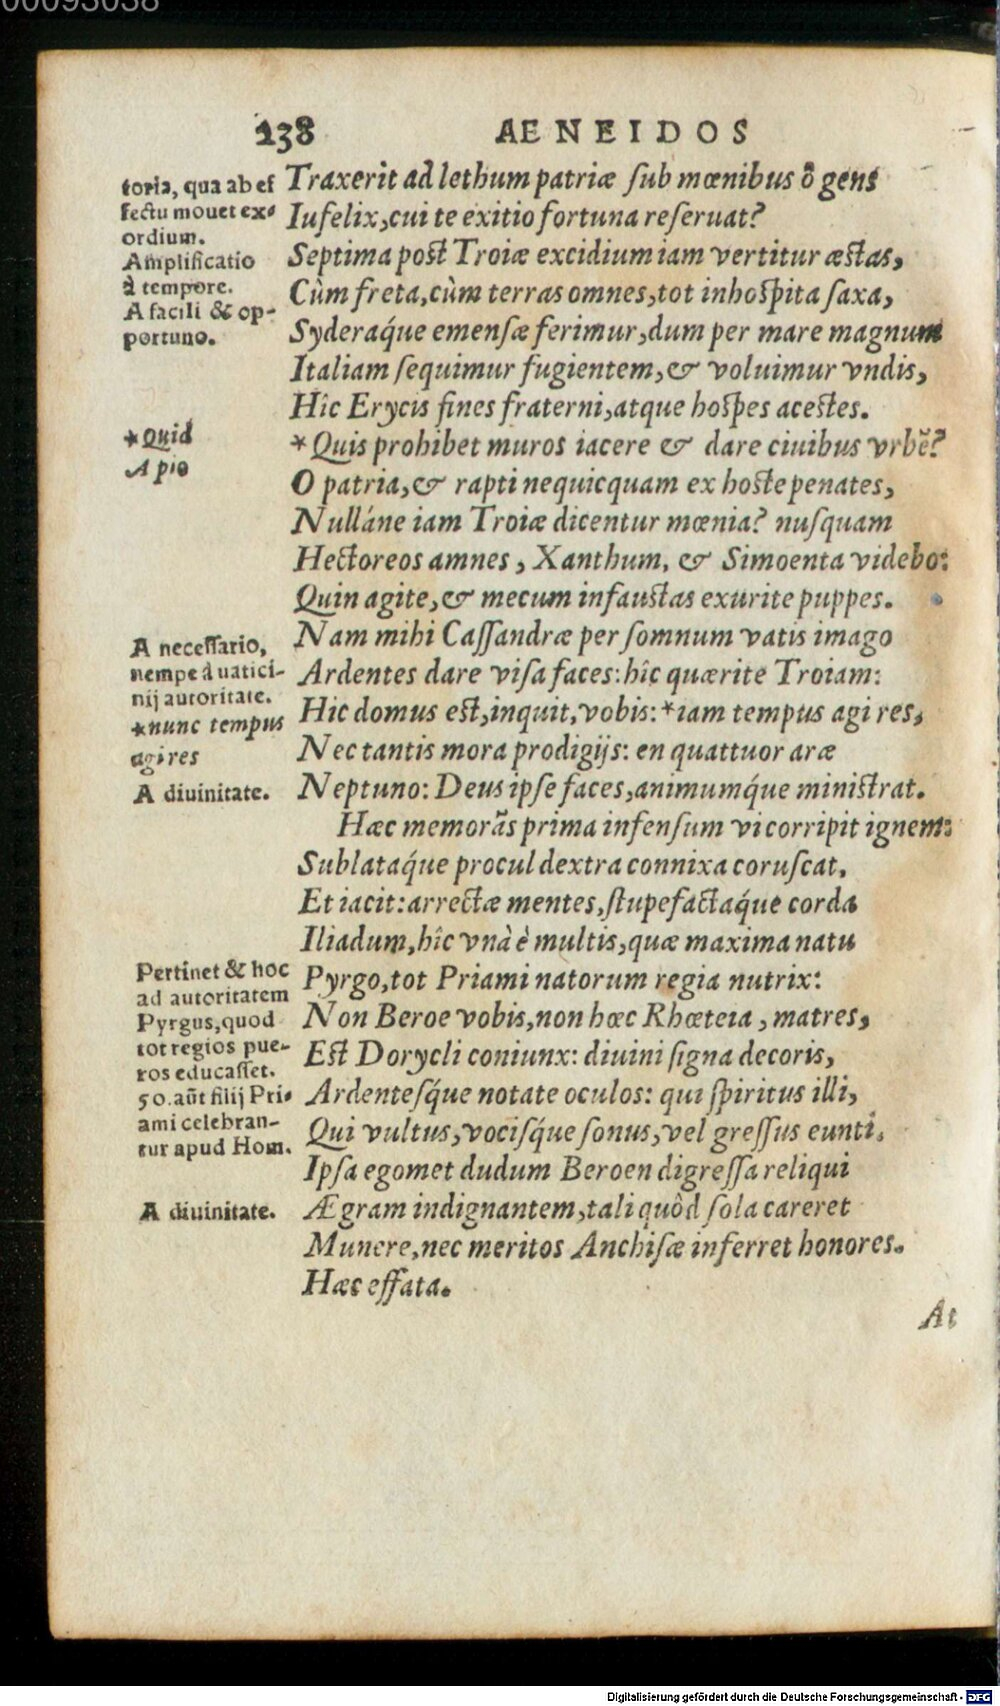 00093038
138 AENEIDOS
toria, qua ab ef
fectu mouet ex-
ordium.
Amplificatio
à tempore.
A facili & op-
portuno.
*Quid
A pio
A necessario,
nempe à uatici-
nij autoritate.
*nunc tempus
agi res
A diuinitate.
Pertinet & hoc
ad autoritatem
Pyrgus, quod
tot regios pue-
ros educasset.
50. aũt filij Pri-
ami celebran-
tur apud Hom.
A diuinitate.
Traxerit ad lethum patriæ ſub mœnibus ô gens
Iufelix, cui te exitio fortuna reſeruat?
Septima post Troiæ excidium iam vertitur æstas,
Cùm freta, cùm terras omnes, tot inhoſpita ſaxa,
Syderaq́ue emenſæ ferimur, dum per mare magnum
Italiam ſequimur fugientem, & voluimur vndis,
Hîc Erycis fines fraterni, atque hoſpes acestes.
*Quis prohibet muros iacere & dare ciuibus vrbẽ?
O patria, & rapti nequicquam ex hoste penates,
Nulláne iam Troiæ dicentur mœnia? nuſquam
Hectoreos amnes, Xanthum, & Simoenta videbo:
Quin agite, & mecum infaustas exurite puppes.
Nam mihi Caſſandræ per ſomnum vatis imago
Ardentes dare viſa faces: hîc quærite Troiam:
Hic domus est, inquit, vobis: *iam tempus agi res,
Nec tantis mora prodigijs: en quattuor aræ
Neptuno: Deus ipſe faces, animumq́ue ministrat.
Hæc memorãs prima infenſum vi corripit ignem:
Sublataq́ue procul dextra connixa coruſcat,
Et iacit: arrectæ mentes, ſtupefactaq́ue corda
Iliadum, hîc vnà è multis, quæ maxima natu
Pyrgo, tot Priami natorum regia nutrix:
Non Beroe vobis, non hœc Rhœteia, matres,
Est Dorycli coniunx: diuini ſigna decoris,
Ardentesq́ue notate oculos: qui ſpiritus illi,
Qui vultus, vocisq́ue ſonus, vel greſſus eunti,
Ipſa egomet dudum Beroen digreſſa reliqui
Ægram indignantem, tali quôd ſola careret
Munere, nec meritos Anchiſæ inferret honores.
Hæc effata.
At
Digitalisierung gefördert durch die Deutsche Forschungsgemeinschaft - DFG